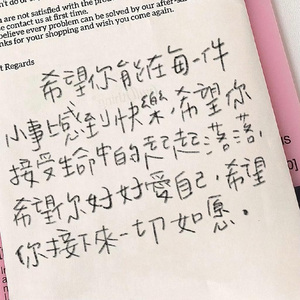 are not satisfied with the pro
contact us at first time.
believe every problem can be solved by our after-
anks for your shopping and wish you come again.
Regards
希望你能在每一件
小事上感到快樂,希望你
接受生命中的起起落落,
希望你好好愛自己,希望
你接下來一切如愿.